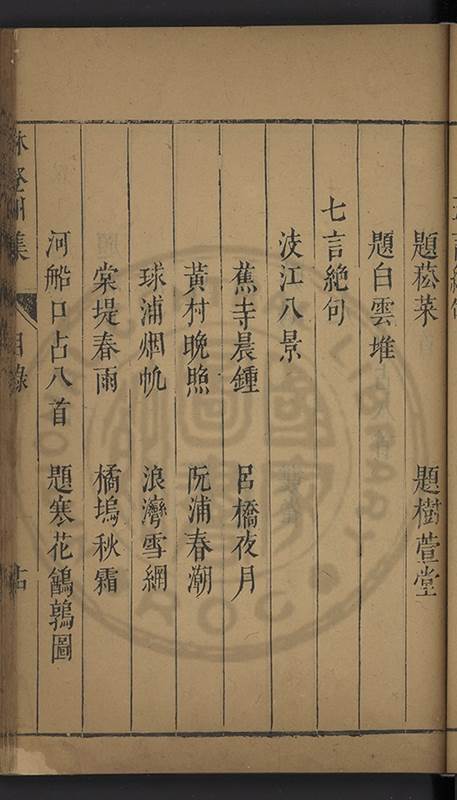 五言絶句
題菘菜　題樹萱堂
題白雲堆
七言絶句
淩江八景
蕉寺晨鍾　呂橋夜月
黃村晩照　阮浦春潮
球浦烟帆　浪灣雪網
棠堤春雨　橘塢秋霜
河船口占八首　題寒花鵪鶉圖
林登州集　目錄